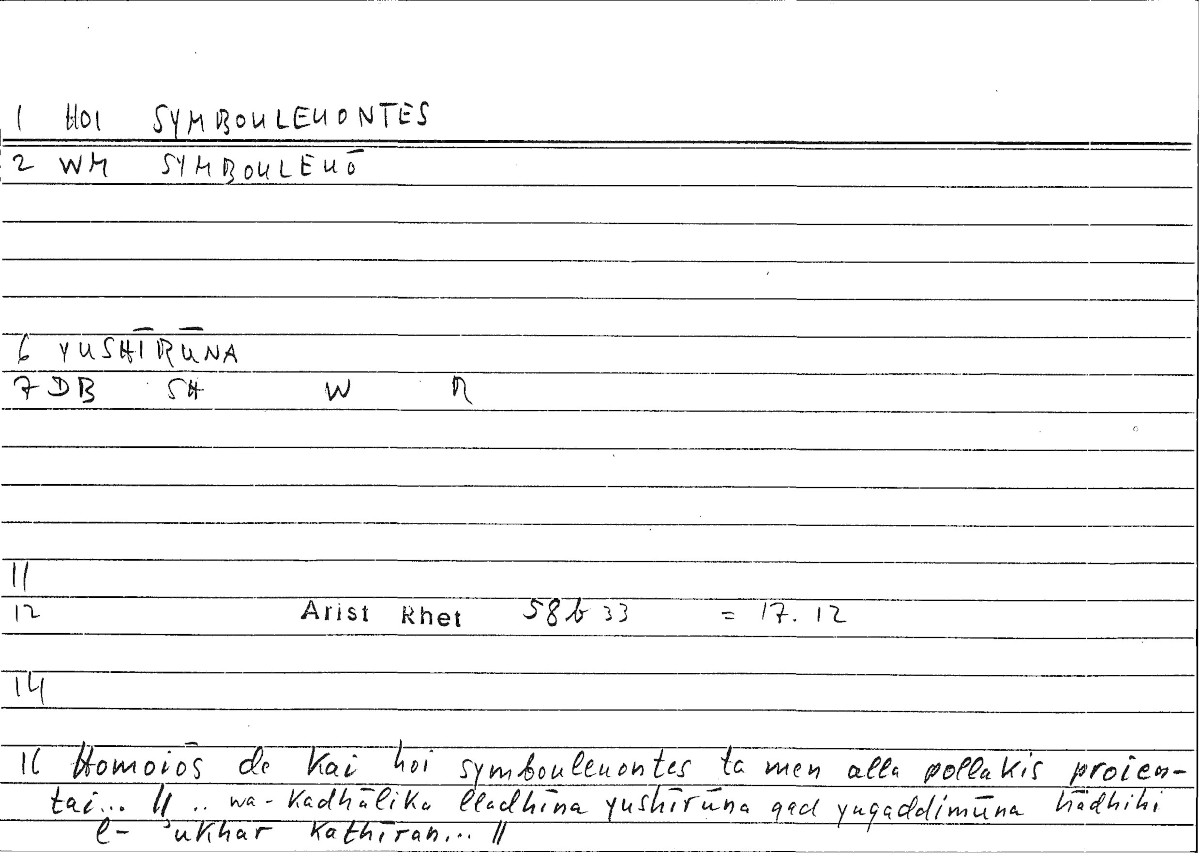 1 HOI SYMBOULEUONTES
2 WM SYMBOULEUŌ
6 YUSHĪRŪNA
7 DB SH W R
11
12 Arist Rhet 58b33 = 17.12
14
16 Homoiōs de kai hoi symbouleuontes ta men alla pollakis proien-
tai... // .. wa-kadhālika lladhīna yushīrūna qad yuqaddimūna hādhihi
l-ʾukhar kathīran... //